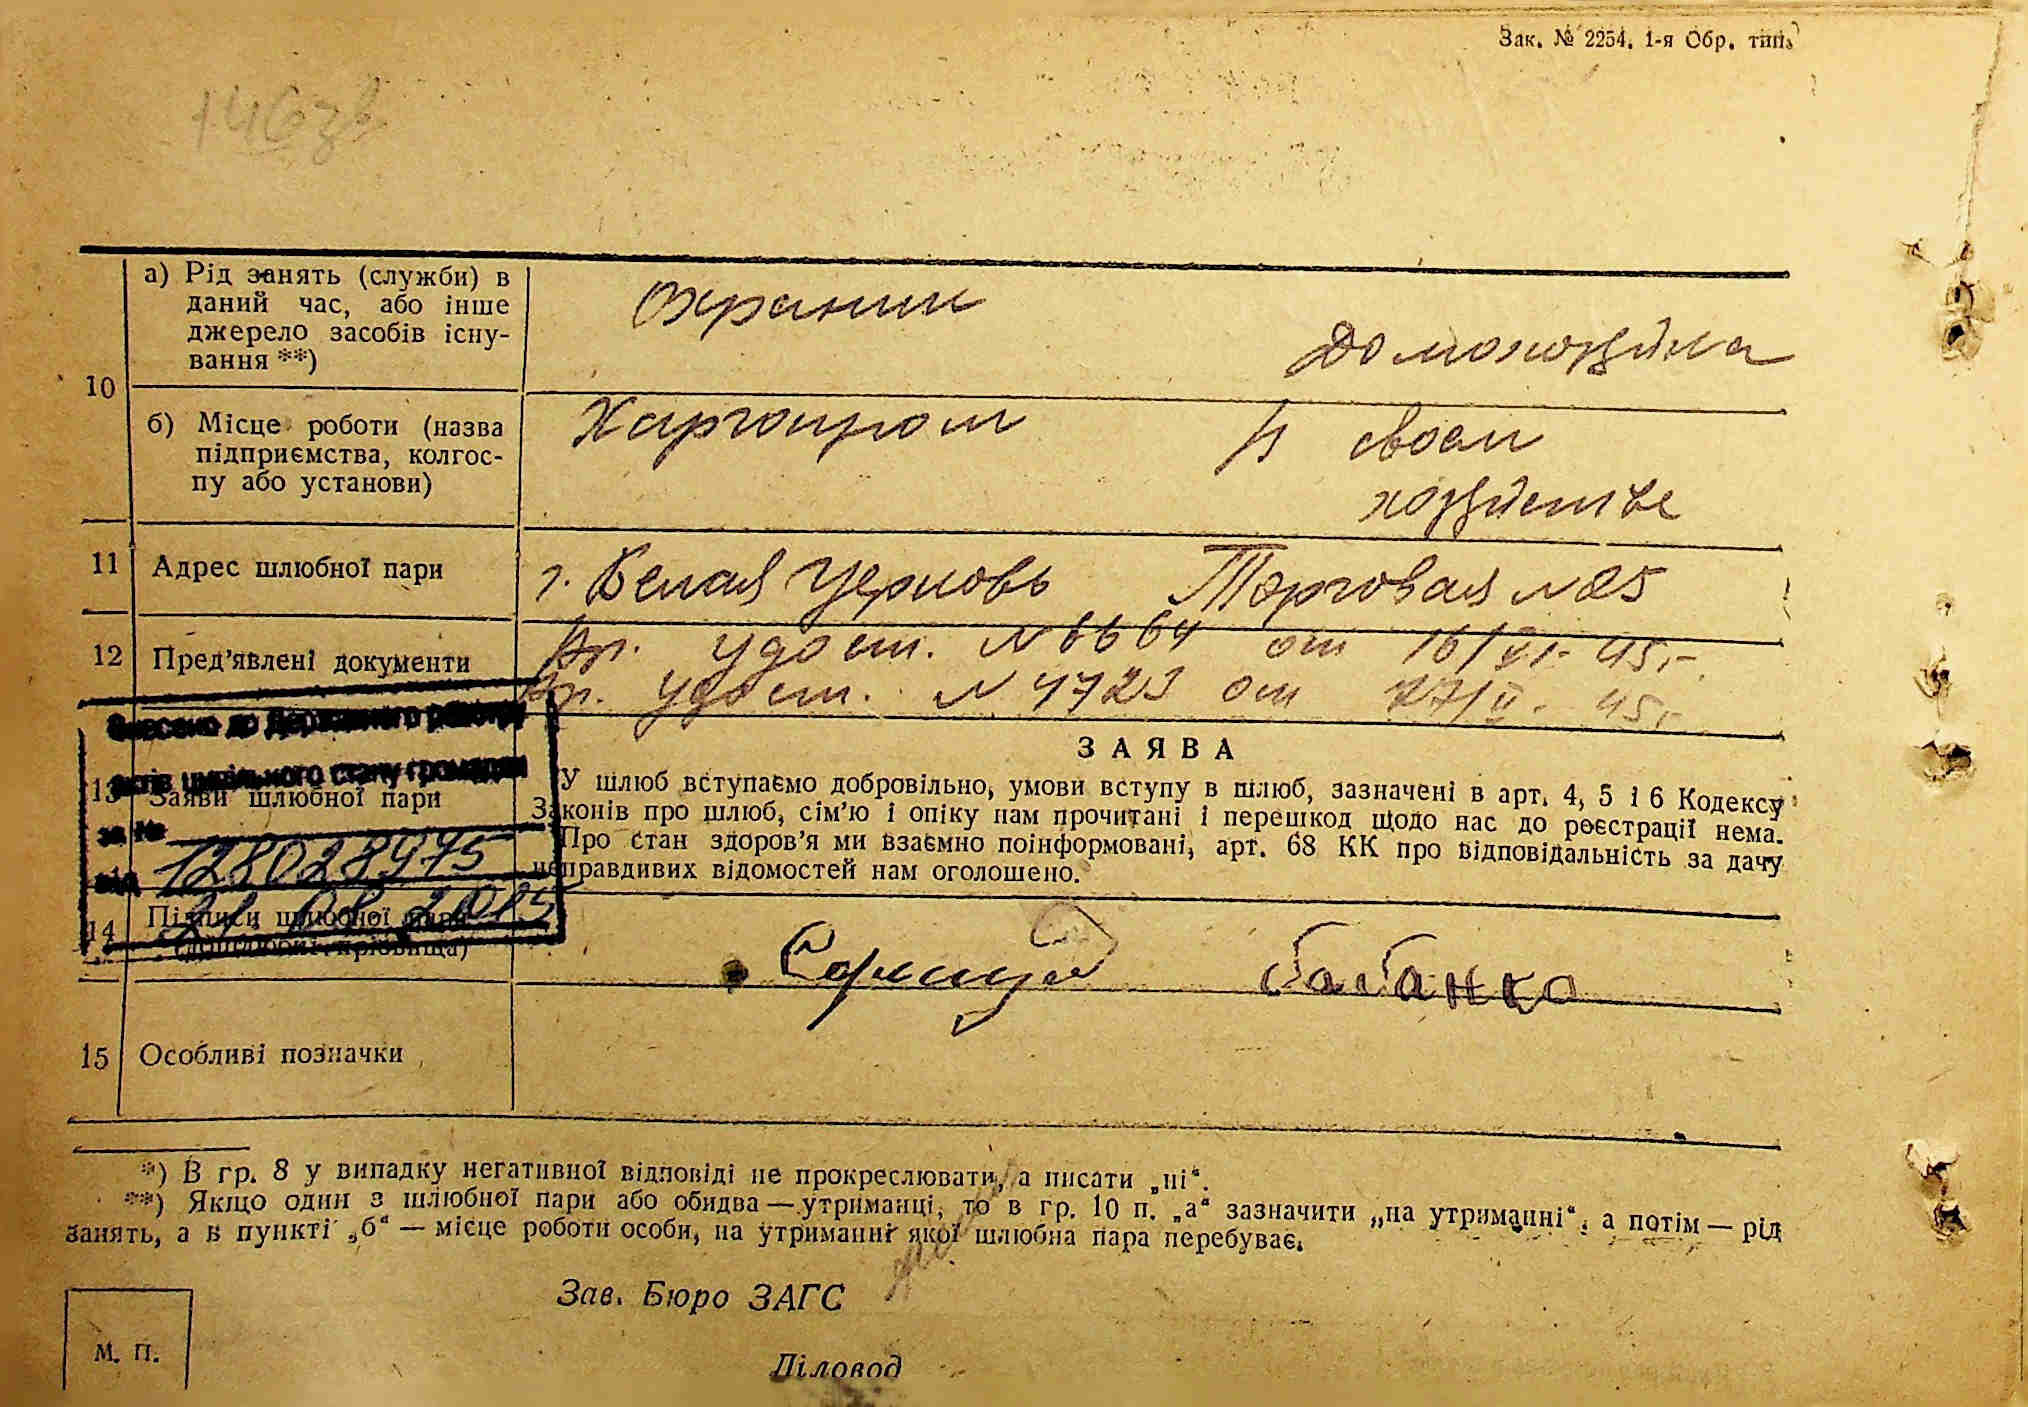 Зак. № 2254. 1-я Обр. тип.
10
а) Рід занять (служби) в
даний час, або інше
джерело засобів існу-
вання **)
Охранник
домохозяйка
б) Місце роботи (назва
підприємства, колгос-
пу або установи)
Харгопром
В своем
хозяйстве
11 Адрес шлюбної пари
г. Белая Церковь Торговая №25
12 Пред'явлені документи
Вр. удост. № 6664 от 16/VI- 45.-
Вр. удост. № 4723 от 27/V- 45.-
Внесено до Державного реєстру
актів цивільного стану громадян
за №
128028975
від
ЗАЯВА
13 Заяви шлюбної пари
У шлюб вступаємо добровільно, умови вступу в шлюб, зазначені в арт. 4, 5 і 6 Кодексу
Законів про шлюб, сім'ю і опіку нам прочитані і перешкод щодо нас до реєстрації нема.
Про стан здоров'я ми взаємно поінформовані, арт. 68 КК про відповідальність за дачу
неправдивих відомостей нам оголошено.
14 Підписи шлюбної пари
(дошлюбні прізвища)
Бабанко
15 Особливі позначки
*) В гр. 8 у випадку негативної відповіді не прокреслювати, а писати „ні“.
**) Якщо один з шлюбної пари або обидва — утриманці, то в гр. 10 п. „а“ зазначити „на утриманні“, а потім — рід
занять, а в пункті „б“ — місце роботи особи, на утриманні якої шлюбна пара перебуває.
Зав. Бюро ЗАГС
М. П.
Діловод